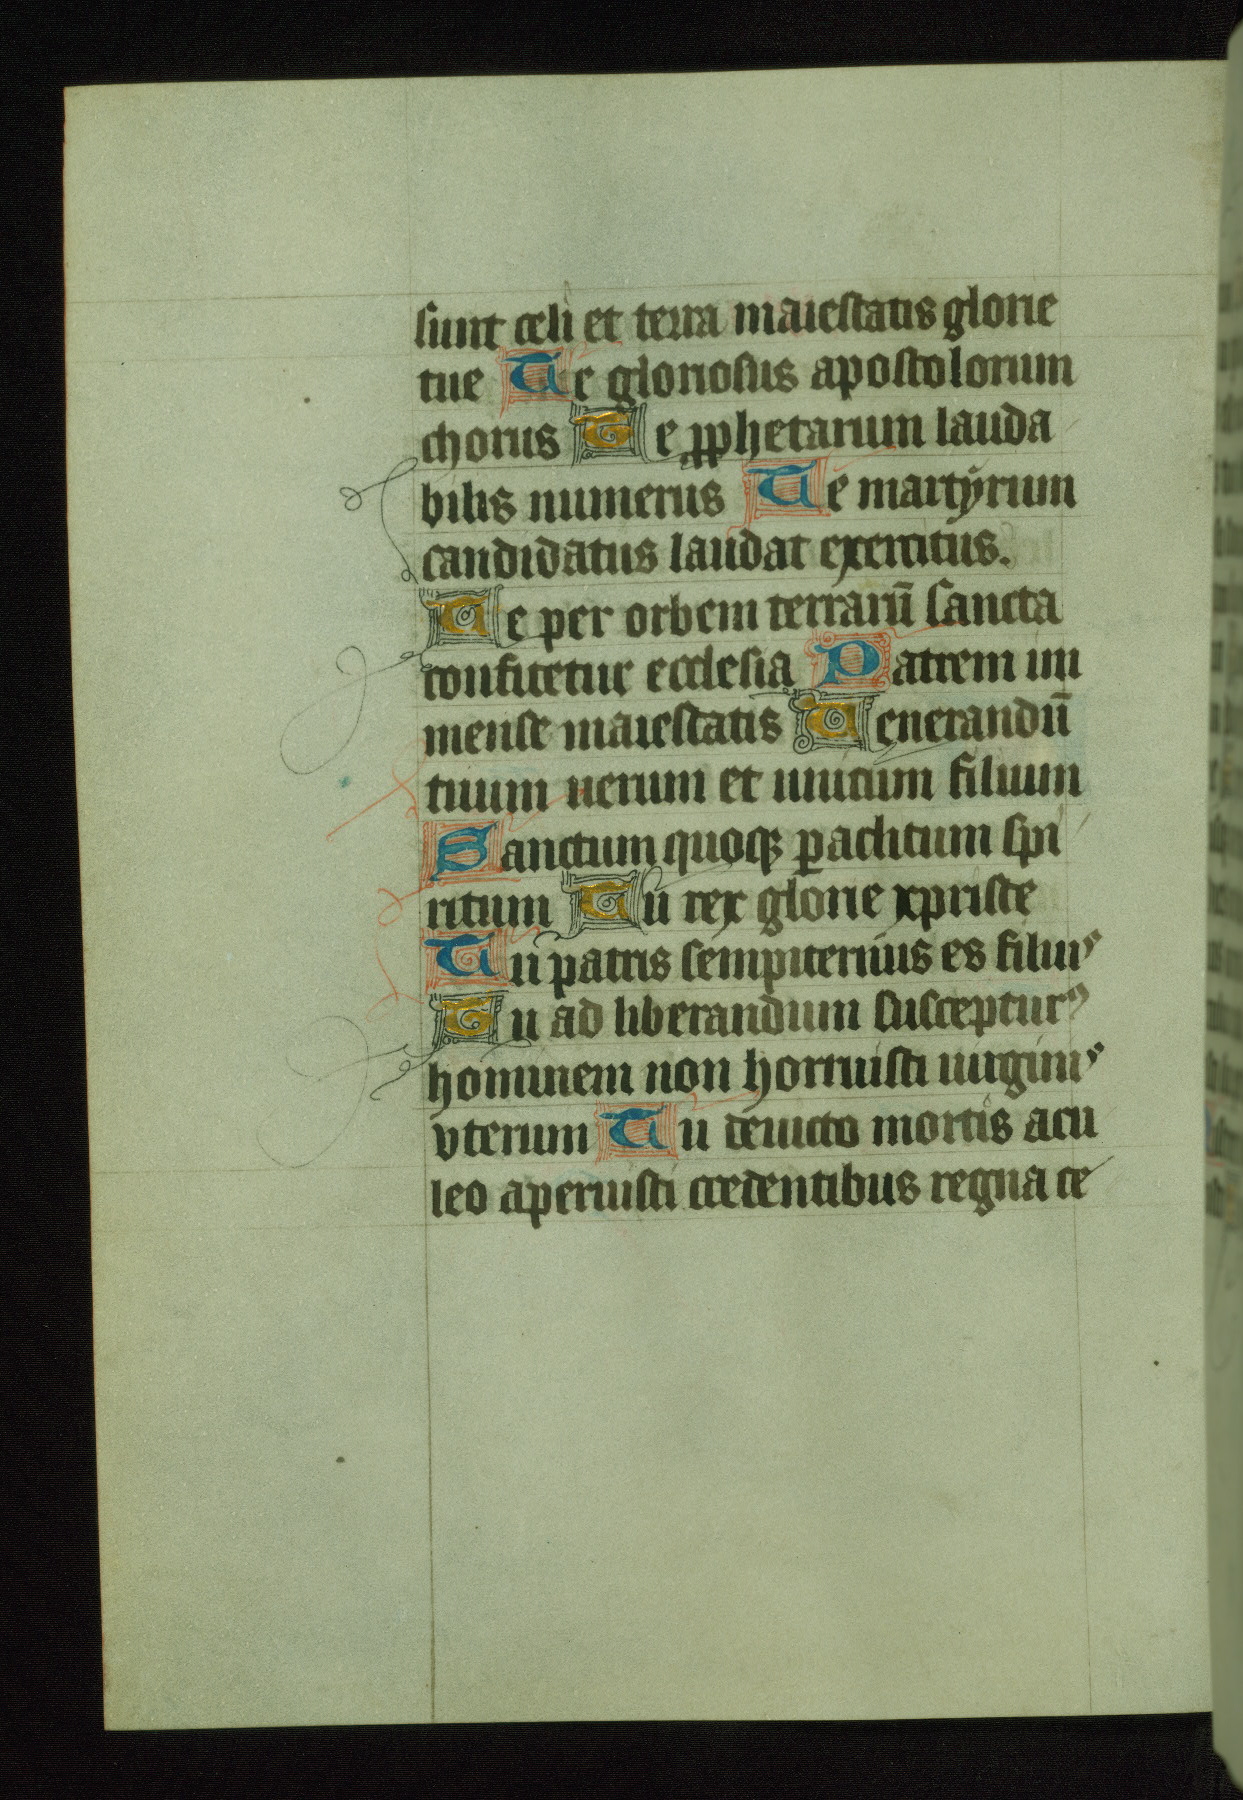 sunt celi et terra maiestatis glorie
tue Te gloriosus apostolorum
chorus Te ꝓphetarum lauda
bilis numerus Te martyrum
candidatus laudat exercitus.
Te per orbem terrarū sancta
confitetur ecclesia Patrem im
mense maiestatis Uenerandū
tuum uerum et unicum filium
Sanctum quoqꝫ ꝑaclitum spi
ritum Tu rex glorie xpriste
Tu patris sempiternus es filiuˢ
Tu ad liberandum suscepturꝰ
hominem non horruisti uirginiˢ
vterum Tu deuicto mortis acu
leo aperuisti credentibus regna ce